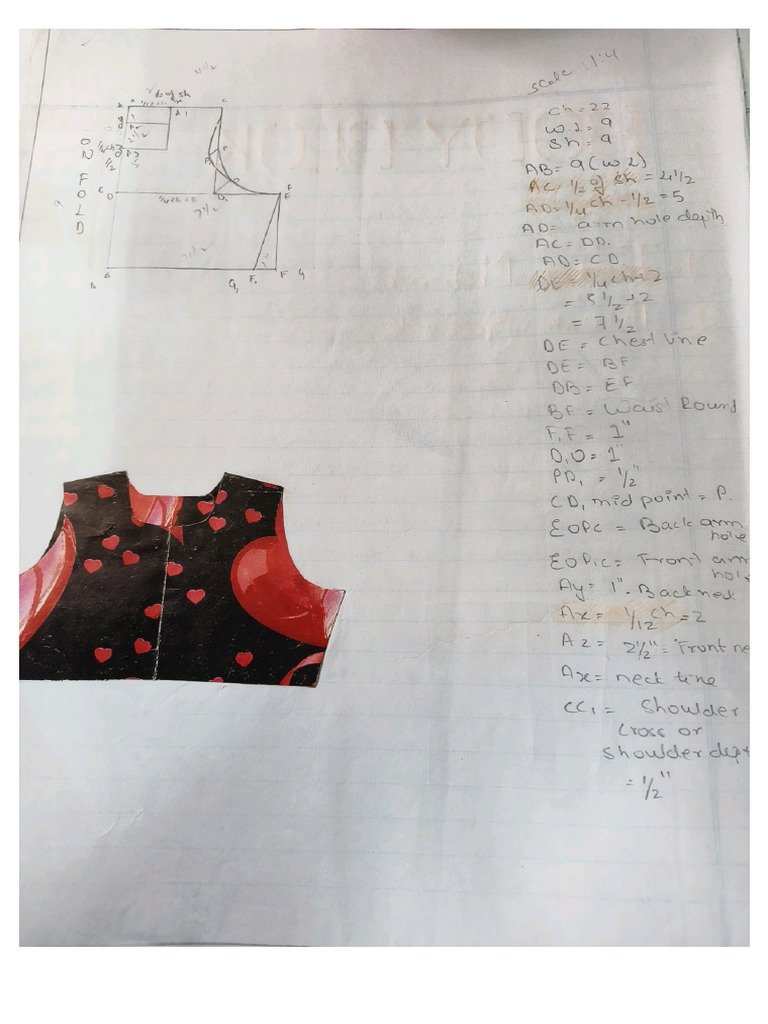 scale : 1:4
ch = 22
w.l = 9
sh = 9
AB = 9 (w l)
AC = 1/2 of sh = 4 1/2
AD = 1/4 ch - 1/2 = 5
AD = arm hole depth
AC = DD.
AD = CD.
DE = 1/4 ch + 2
= 5 1/2 + 2
= 7 1/2
DE = Chest line
DE = BF
DB = EF
BF = Waist Round
F,F = 1"
D,O = 1"
PD, = 1/2"
CD, mid point = P.
EOPC = Back arm
hole
EOP1C = Front arm
hole
Ay = 1" - Back neck
Ax = 1/12 ch = 2
Az = 2 1/2" = Front ne
Ax = neck line
CC1 = Shoulder
Cross or
Shoulder dept
= 1/2"
ON FOLD
7 1/2